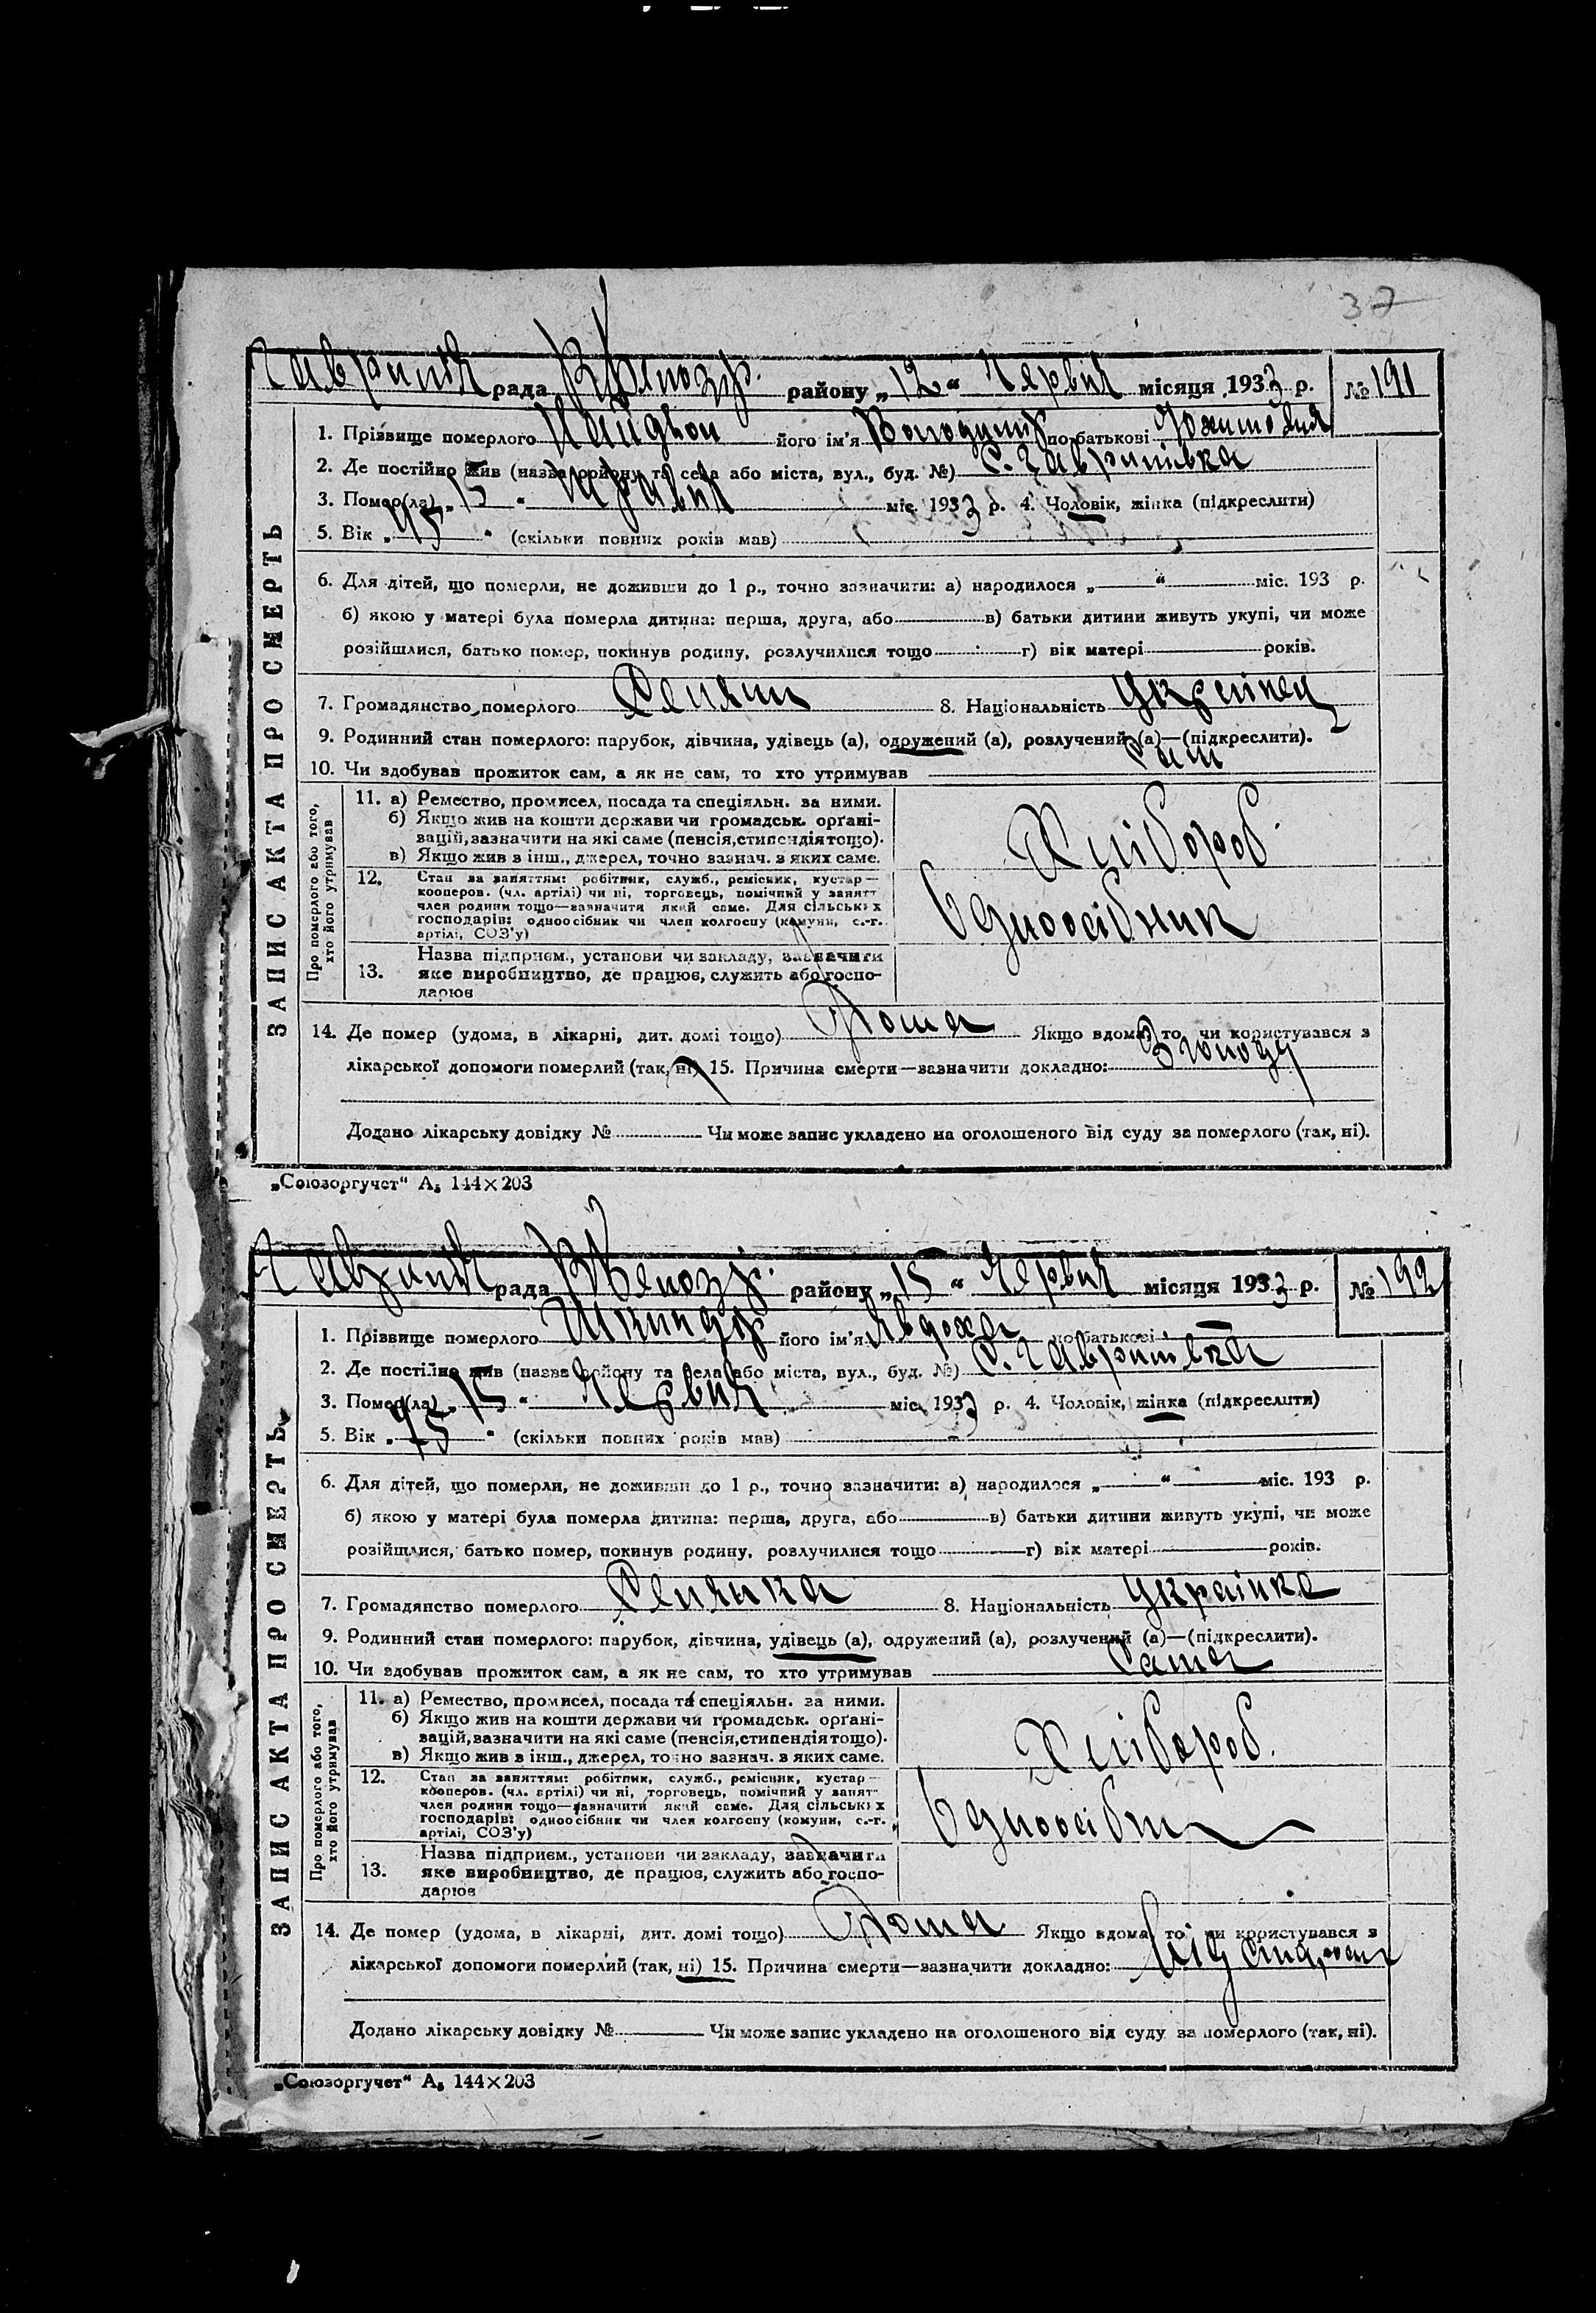 37
рада району „12“ Червня місяця 1933 р. № 191
1. Прізвище померлого його ім'я Володимир по батькові
2. Де постійно жив (назва району та села або міста, вул., буд. №) с. Гаврилівка
3. Помер(ла) „15“ Травня міс. 1933 р. 4. Чоловік, жінка (підкреслити)
5. Вік „ “ (скільки повних років мав)
6. Для дітей, що померли, не доживши до 1 р., точно зазначити: а) народилося „ “ міс. 193 р.
б) якою у матері була померла дитина: перша, друга, або в) батьки дитини живуть укупі, чи може
розійшлися, батько помер, покинув родину, розлучилися тощо г) вік матері років.
7. Громадянство померлого Селянин 8. Національність Українец
9. Родинний стан померлого: парубок, дівчина, удівець (а), одружений (а), розлучений (а)—(підкреслити).
10. Чи здобував прожиток сам, а як не сам, то хто утримував Сам
ЗАПИС АКТА ПРО СМЕРТЬ
Про померлого або того,
хто його утримував
11. а) Ремество, промисел, посада та спеціяльн. за ними.
б) Якщо жив на кошти держави чи громадськ. орґані-
зацій, зазначити на які саме (пенсія, стипендія тощо).
в) Якщо жив з інш., джерел, точно зазнач. з яких саме.
Хлібороб
12. Стан за заняттям: робітник, служб., ремісник, кустар—
кооперов. (чл. артілі) чи ні, торговець, помічний у занятт
член родини тощо—зазначити який саме. Для сільських
господарів: одноосібник чи член колгоспу (комуни, с.-г.
артілі, СОЗ'у)
Одноосібник
13. Назва підприєм., установи чи закладу, зазначити
яке виробництво, де працює, служить або госпо-
дарює
14. Де помер (удома, в лікарні, дит. домі тощо) Дома Якщо вдома, то чи користувався з
лікарської допомоги померлий (так, ні) 15. Причина смерти—зазначити докладно: З голоду
Додано лікарську довідку № Чи може запис укладено на оголошеного від суду за померлого (так, ні).
„Союзоргучет“ А₅ 144×203
рада району „15“ Червня місяця 1933 р. № 192
1. Прізвище померлого його ім'я Явдоха по батькові
2. Де постійно жив (назва району та села або міста, вул., буд. №) с. Гаврилівка
3. Помер(ла) „15“ Червня міс. 1933 р. 4. Чоловік, жінка (підкреслити)
5. Вік „75“ (скільки повних років мав)
6. Для дітей, що померли, не доживши до 1 р., точно зазначити: а) народилося „ “ міс. 193 р.
б) якою у матері була померла дитина: перша, друга, або в) батьки дитини живуть укупі, чи може
розійшлися, батько помер, покинув родину, розлучилися тощо г) вік матері років.
7. Громадянство померлого Селянка 8. Національність Українка
9. Родинний стан померлого: парубок, дівчина, удівець (а), одружений (а), розлучений (а)—(підкреслити).
10. Чи здобував прожиток сам, а як не сам, то хто утримував Сама
ЗАПИС АКТА ПРО СМЕРТЬ
Про померлого або того,
хто його утримував
11. а) Ремество, промисел, посада та спеціяльн. за ними.
б) Якщо жив на кошти держави чи громадськ. орґані-
зацій, зазначити на які саме (пенсія, стипендія тощо).
в) Якщо жив з інш., джерел, точно зазнач. з яких саме.
Хлібороб.
12. Стан за заняттям: робітник, служб., ремісник, кустар—
кооперов. (чл. артілі) чи ні, торговець, помічний у занят-
член родини тощо—зазначити який саме. Для сільських
господарів: одноосібник чи член колгоспу (комуни, с.-г.
артілі, СОЗ'у)
13. Назва підприєм., установи чи закладу, зазначити
яке виробництво, де працює, служить або госпо-
дарює
14. Де помер (удома, в лікарні, дит. домі тощо) Дома Якщо вдома, то чи користувався з
лікарської допомоги померлий (так, ні) 15. Причина смерти—зазначити докладно: Від
Додано лікарську довідку № Чи може запис укладено на оголошеного від суду за померлого (так, ні).
„Союзоргучет“ А₅ 144×203